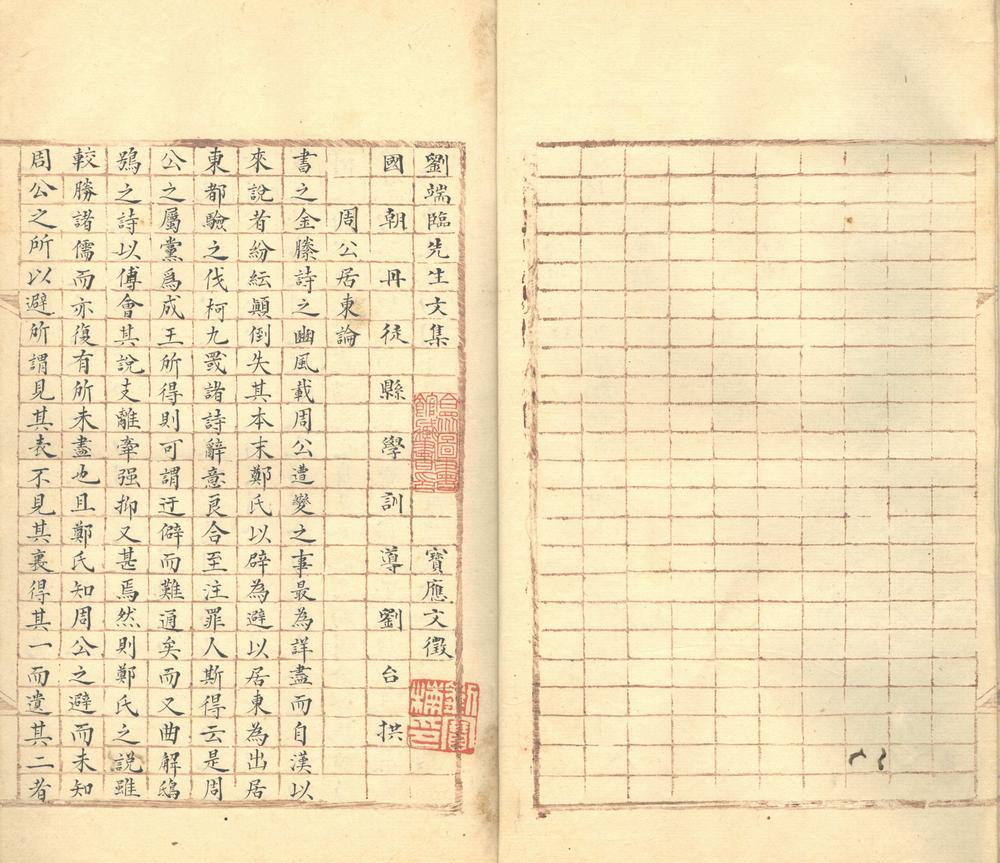 劉端臨先生文集 寶應文徵
國朝丹徒縣學訓導劉台拱
周公居東論
書之金縢詩之豳風載周公遭變之事最為詳盡而自漢以
來說者紛紜顛倒失其本末鄭氏以辟為避以居東為出居
東都驗之伐柯九罭諸詩辭意良合至注罪人斯得云是周
公之屬黨爲成王所得則可謂迂僻而難通矣而又曲解鴟
鴞之詩以傅會其說支離牽强抑又甚焉然則鄭氏之説雖
較勝諸儒而亦復有所未盡也且鄭氏知周公之避而未知
周公之所以避所謂見其表不見其裏得其一而遺其二者